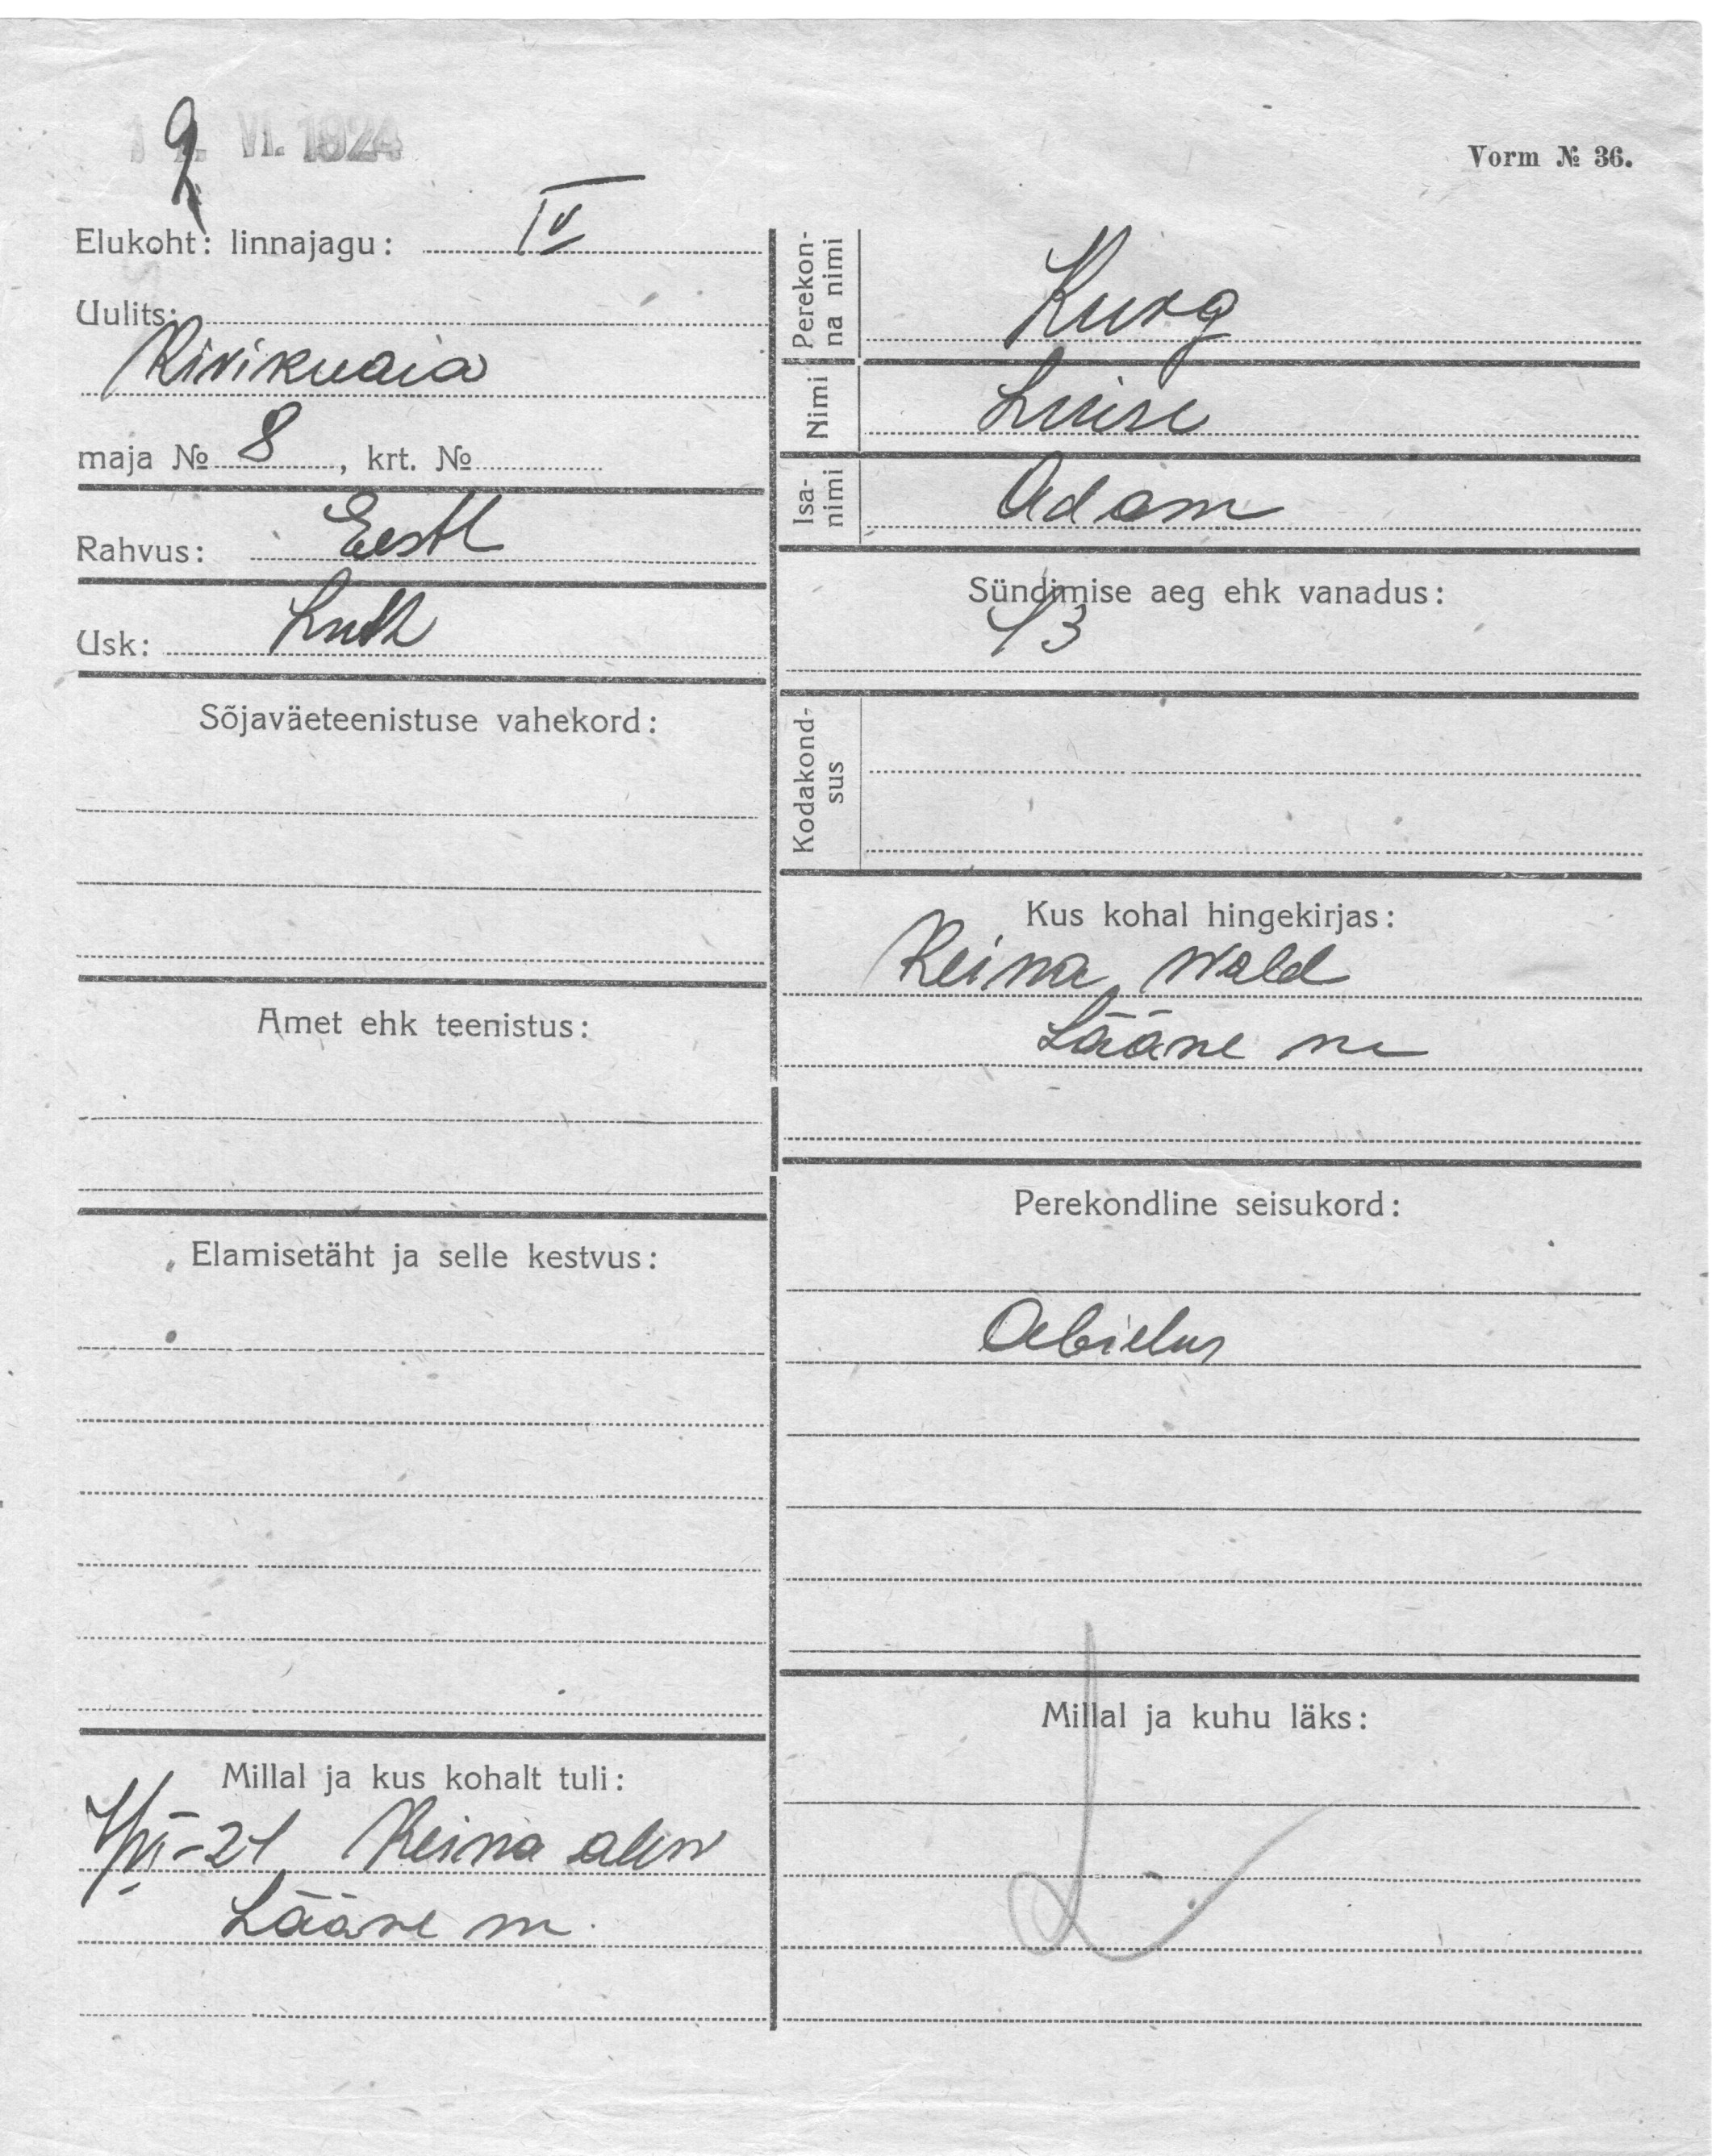 VI. 1924
9
Vorm № 36.
Elukoht: linnajagu: IV
Uulits:
Kivikuaia
maja № 8, krt. №
Rahvus: Eestl
Usk: Luth
Sõjaväeteenistuse vahekord:
Amet ehk teenistus:
Elamisetäht ja selle kestvus:
Millal ja kus kohalt tuli:
4/VI-24 Keina alew
Lääne m.
Perekon-
na nimi
Kurg
Nimi
Luise
Isa-
nimi
Adam
Sündimise aeg ehk vanadus:
43
Kodakond-
sus
Kus kohal hingekirjas:
Keina wald
Lääne m
Perekondline seisukord:
Abielus
Millal ja kuhu läks: